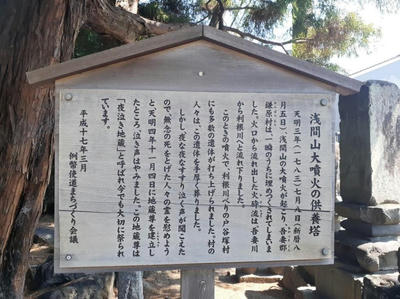 浅間山大噴火の供養塔
天明三年（一七八三）七月八日（新暦八
月五日）、浅間山の大噴火が起こり、吾妻郡
鎌原村は、一瞬のうちに埋めつくされてしまいま
した。火口から流れ出した火砕流は、吾妻川
から利根川へと流れ下りました。
このときの噴火で、利根川べりの戸谷塚村
にも多数の遺体が打ち上げられました。村の
人々は、この遺体を手厚く葬りました。
しかし、夜な夜なすすり泣く声が聞こえた
ので、無念の死をとげた人々の霊を慰めよう
と天明四年十一月四日に地蔵尊を建立し
たところ、泣き声はやみました。この地蔵尊は
「夜泣き地蔵」と呼ばれ、今でも大切に祭られ
ています。
平成十七年三月
例幣使道まちづくり会議